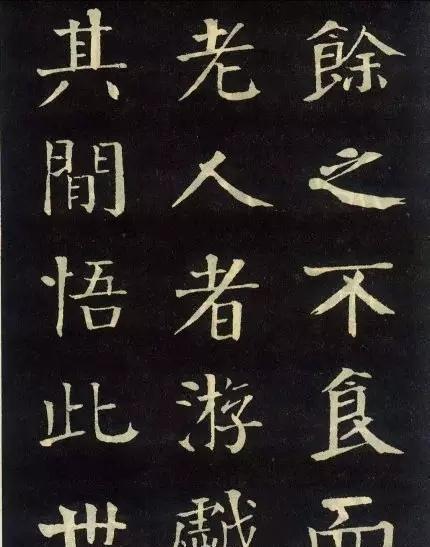 餘之不食而
老人者游戲
其間悟此世